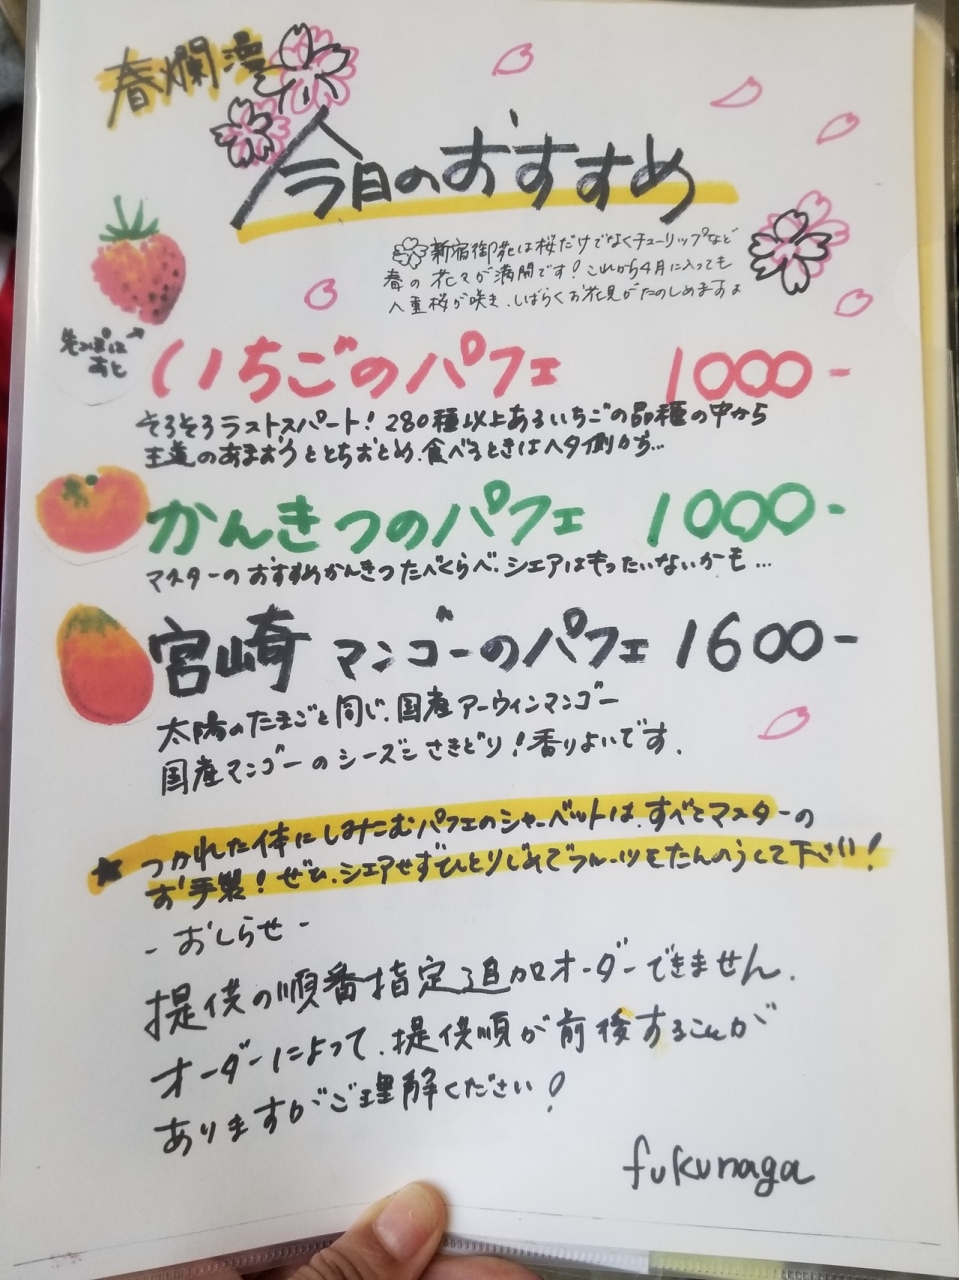 春爛漫
今日のおすすめ
新宿御苑は桜だけでなくチューリップなど
春の花々が満開です！これから4月に入っても
八重桜が咲き、しばらくお花見がたのしめますよ
先っぽは
あと
いちごのパフェ 1000-
そろそろラストスパート！280種以上あるいちごの品種の中から
王道のあまおうととちおとめ、食べるときはヘタ側から…
かんきつのパフェ 1000-
マスターのおすすめかんきつたべくらべ、シェアはもったいないかも…
宮崎マンゴーのパフェ 1600-
太陽のたまごと同じ、国産アーウィンマンゴー
国産マンゴーのシーズンさきどり！香りよいです。
★つかれた体にしみこむパフェのシャーベットは、すべてマスターの
お手製！ぜひ、シェアせずひとりじめでフルーツをたんのうして下さい！
-おしらせ-
提供の順番指定、追加オーダーできません。
オーダーによって、提供順が前後することが
ありますがご理解ください！
fukunaga